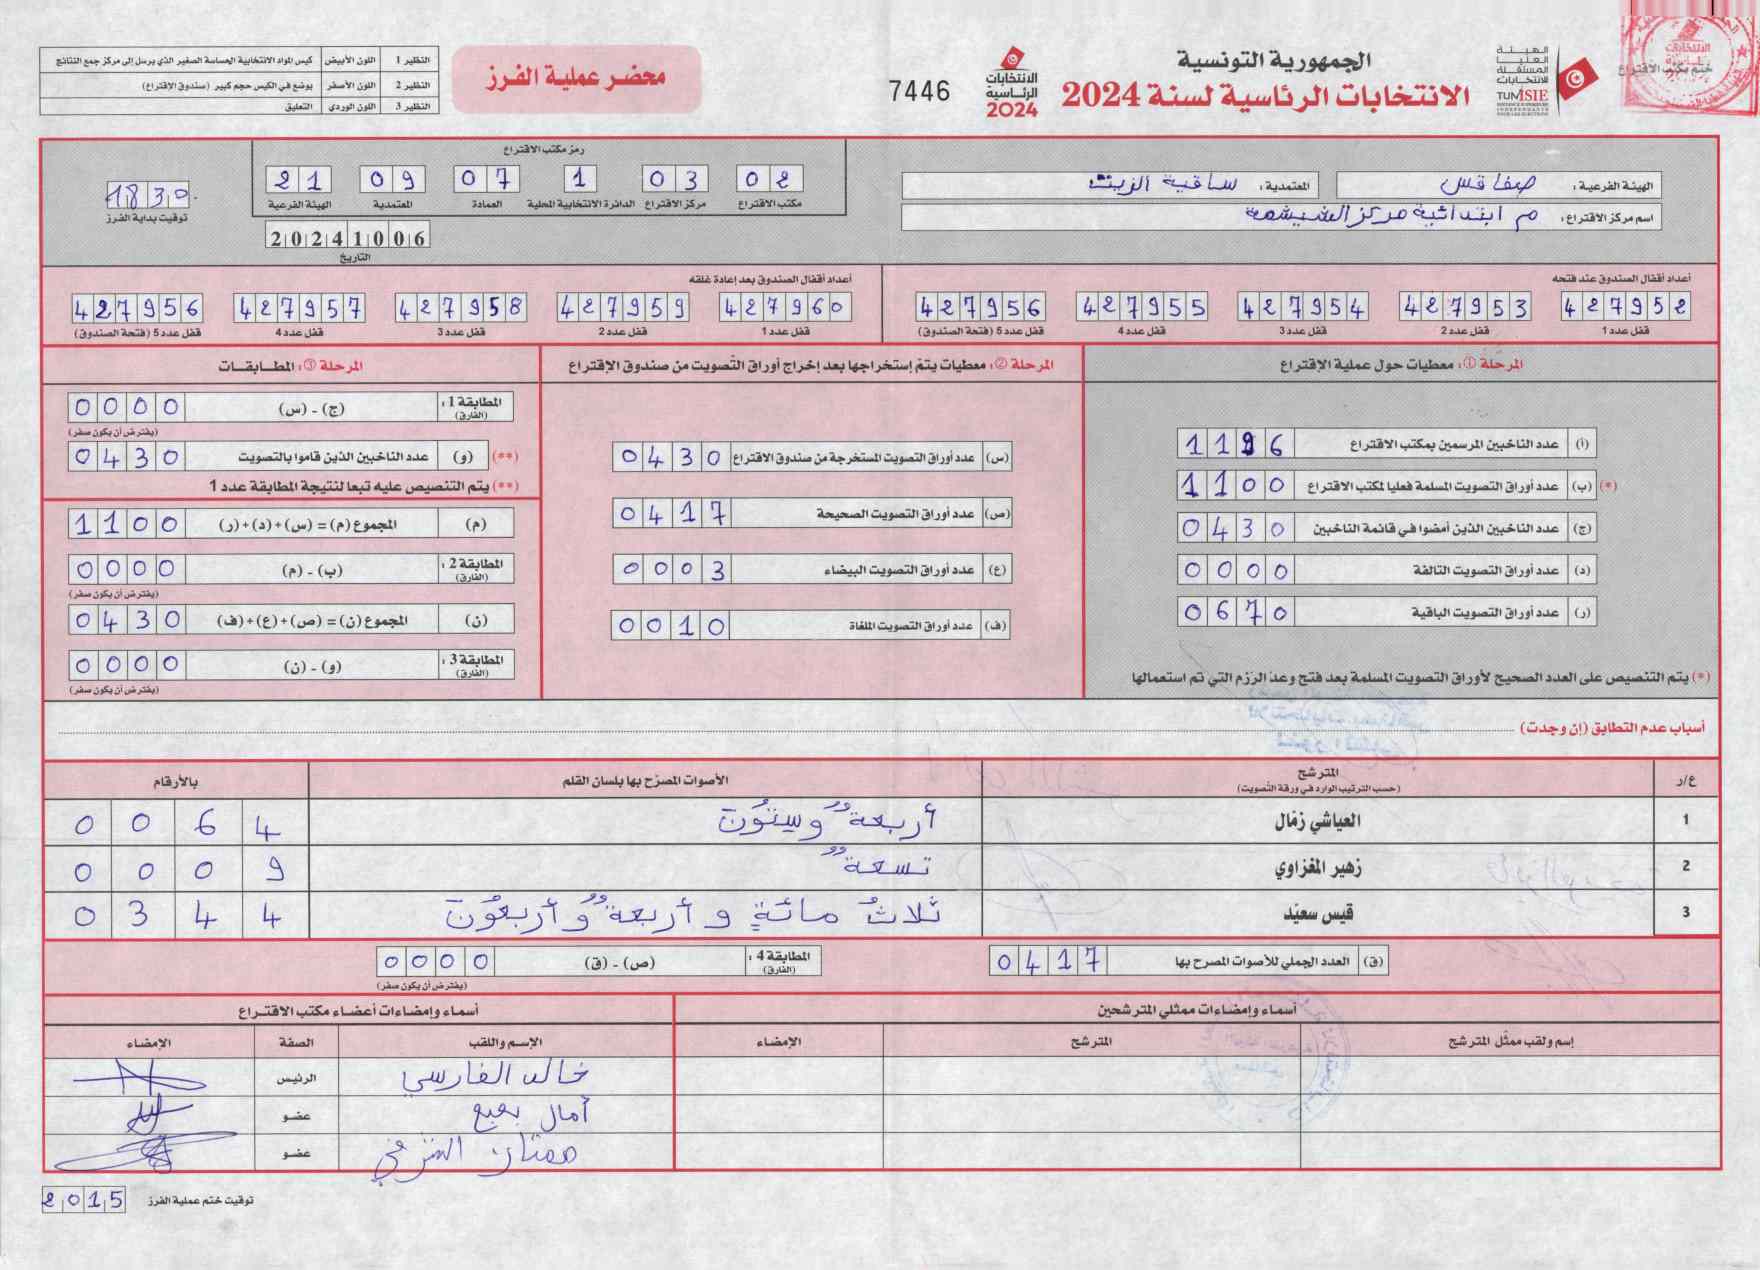 الجمهورية التونسية
الانتخابات الرئاسية لسنة 2024
الهيئة العليا المستقلة للانتخابات
TUNISIE
الانتخابات الرئاسية 2024
7446
محضر عملية الفرز
النظير 1 اللون الأبيض كيس المواد الانتخابية الحساسة الصغير الذي يرسل إلى مركز جمع النتائج
النظير 2 اللون الأصفر يوضع في الكيس حجم كبير (صندوق الإقتراع)
النظير 3 اللون الوردي التعليق
ختم مكتب الاقتراع
الهيئة الفرعية: صفاقس
المعتمدية: ساقية الزيت
اسم مركز الاقتراع: م ابتدائية مركز الشيشمة
رمز مكتب الاقتراع
02 03 1 07 09 21
مكتب الاقتراع مركز الاقتراع الدائرة الانتخابية المحلية العمادة المعتمدية الهيئة الفرعية
20241006
التاريخ
1830
توقيت بداية الفرز
أعداد أقفال الصندوق عند فتحه
427952 427953 427954 427955 427956
قفل عدد 1 قفل عدد 2 قفل عدد 3 قفل عدد 4 قفل عدد 5 (فتحة الصندوق)
أعداد أقفال الصندوق بعد إعادة غلقه
427960 427959 427958 427957 427956
قفل عدد 1 قفل عدد 2 قفل عدد 3 قفل عدد 4 قفل عدد 5 (فتحة الصندوق)
المرحلة ①: معطيات حول عملية الإقتراع
(أ) عدد الناخبين المرسمين بمكتب الاقتراع 1196
(*) (ب) عدد أوراق التصويت المسلمة فعليا لمكتب الاقتراع 1100
(ج) عدد الناخبين الذين أمضوا في قائمة الناخبين 0430
(د) عدد أوراق التصويت التالفة 0000
(ر) عدد أوراق التصويت الباقية 0670
(*) يتم التنصيص على العدد الصحيح لأوراق التصويت المسلمة بعد فتح وعد الرزم التي تم استعمالها
المرحلة ②: معطيات يتم إستخراجها بعد إخراج أوراق التصويت من صندوق الإقتراع
(س) عدد أوراق التصويت المستخرجة من صندوق الاقتراع 0430
(ص) عدد أوراق التصويت الصحيحة 0417
(ع) عدد أوراق التصويت البيضاء 0003
(ف) عدد أوراق التصويت الملغاة 0010
المرحلة ③: المطابقات
المطابقة 1: (الفارق) (ج) - (س) 0000
(يفترض أن يكون صفر)
(**) (و) عدد الناخبين الذين قاموا بالتصويت 0430
(**) يتم التنصيص عليه تبعا لنتيجة المطابقة عدد 1
(م) المجموع (م) = (س)+(د)+(ر) 1100
المطابقة 2: (الفارق) (ب) - (م) 0000
(يفترض أن يكون صفر)
(ن) المجموع (ن) = (ص)+(ع)+(ف) 0430
المطابقة 3: (الفارق) (و) - (ن) 0000
(يفترض أن يكون صفر)
أسباب عدم التطابق (إن وجدت)
ع/ر المترشح الأصوات المصرّح بها بلسان القلم بالأرقام
(حسب الترتيب الوارد في ورقة التصويت)
1 العياشي زمّال أربعةٌ وستّونَ 0064
2 زهير المغزاوي تسعةٌ 0009
3 قيس سعيّد ثلاثُ مائةٍ و أربعةٌ و أربعُونَ 0344
(ق) العدد الجملي للأصوات المصرح بها 0417
المطابقة 4: (الفارق) (ص) - (ق) 0000
(يفترض أن يكون صفر)
أسماء وإمضاءات ممثلي المترشحين
إسم ولقب ممثّل المترشح المترشح الإمضاء
أسماء وإمضاءات أعضاء مكتب الاقتراع
الإسم واللقب الصفة الإمضاء
خالد الفارسي الرئيس
آمال بعبع عضو
عضو
توقيت ختم عملية الفرز 2015